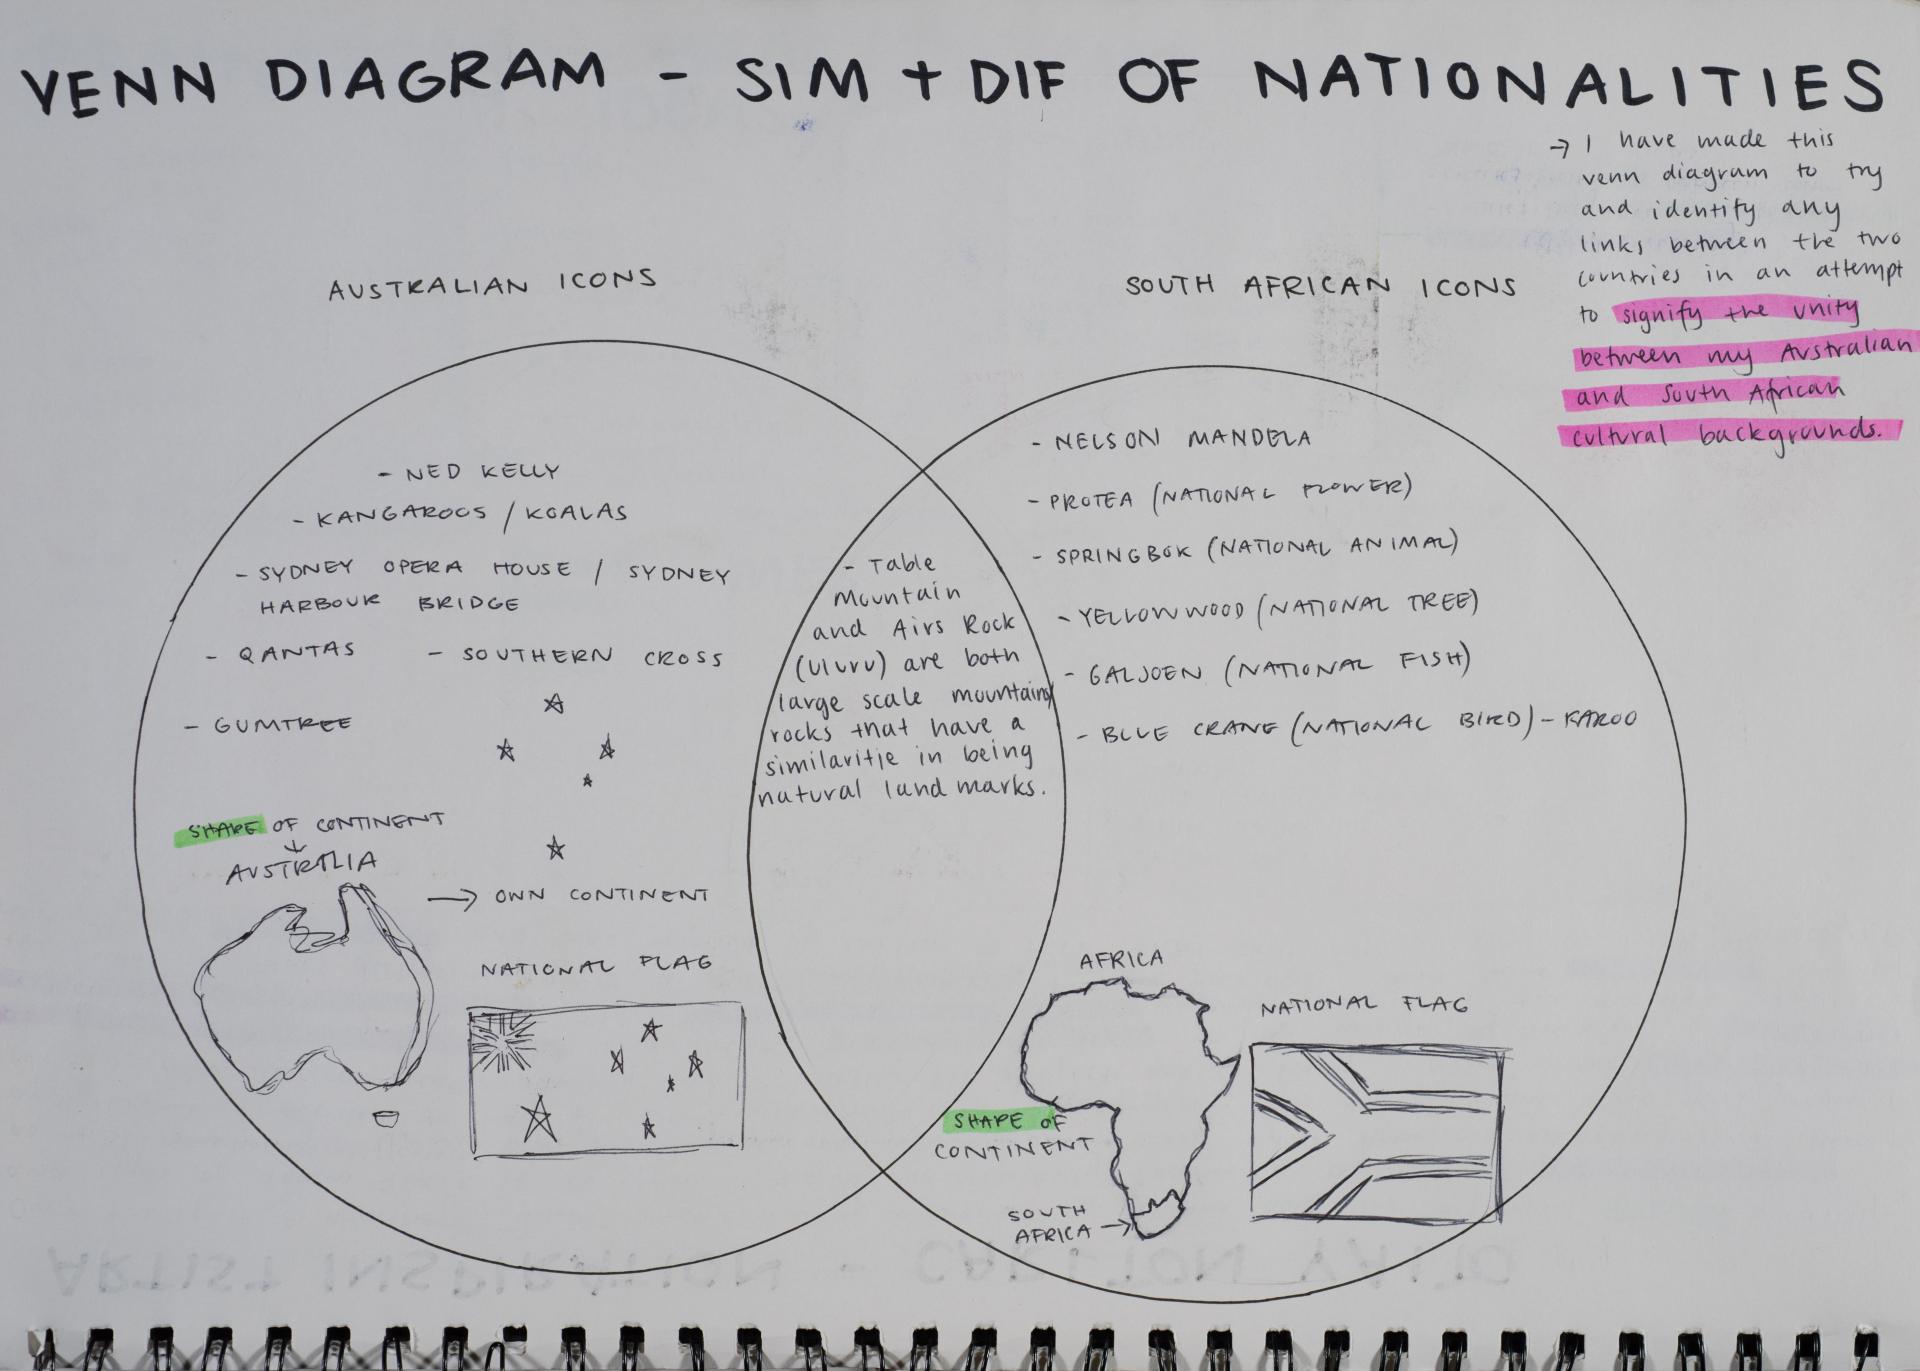 VENN DIAGRAM - SIM + DIF OF NATIONALITIES
→ I have made this
venn diagram to try
and identify any
links between the two
countries in an attempt
to signify the unity
between my Australian
and South African
cultural backgrounds.
AUSTRALIAN ICONS
- NED KELLY
- KANGAROOS / KOALAS
- SYDNEY OPERA HOUSE / SYDNEY
HARBOUR BRIDGE
- QANTAS - SOUTHERN CROSS
- GUMTREE
SHAPE OF CONTINENT
↓
AUSTRALIA
→ OWN CONTINENT
NATIONAL FLAG
- Table
Mountain
and Airs Rock
(Uluru) are both
large scale mountains/
rocks that have a
similaritie in being
natural land marks.
SOUTH AFRICAN ICONS
- NELSON MANDELA
- PROTEA (NATIONAL FLOWER)
- SPRINGBOK (NATIONAL ANIMAL)
- YELLOWWOOD (NATIONAL TREE)
- GALJOEN (NATIONAL FISH)
- BLUE CRANE (NATIONAL BIRD) - KAROO
AFRICA
NATIONAL FLAG
SHAPE OF
CONTINENT
SOUTH
AFRICA →